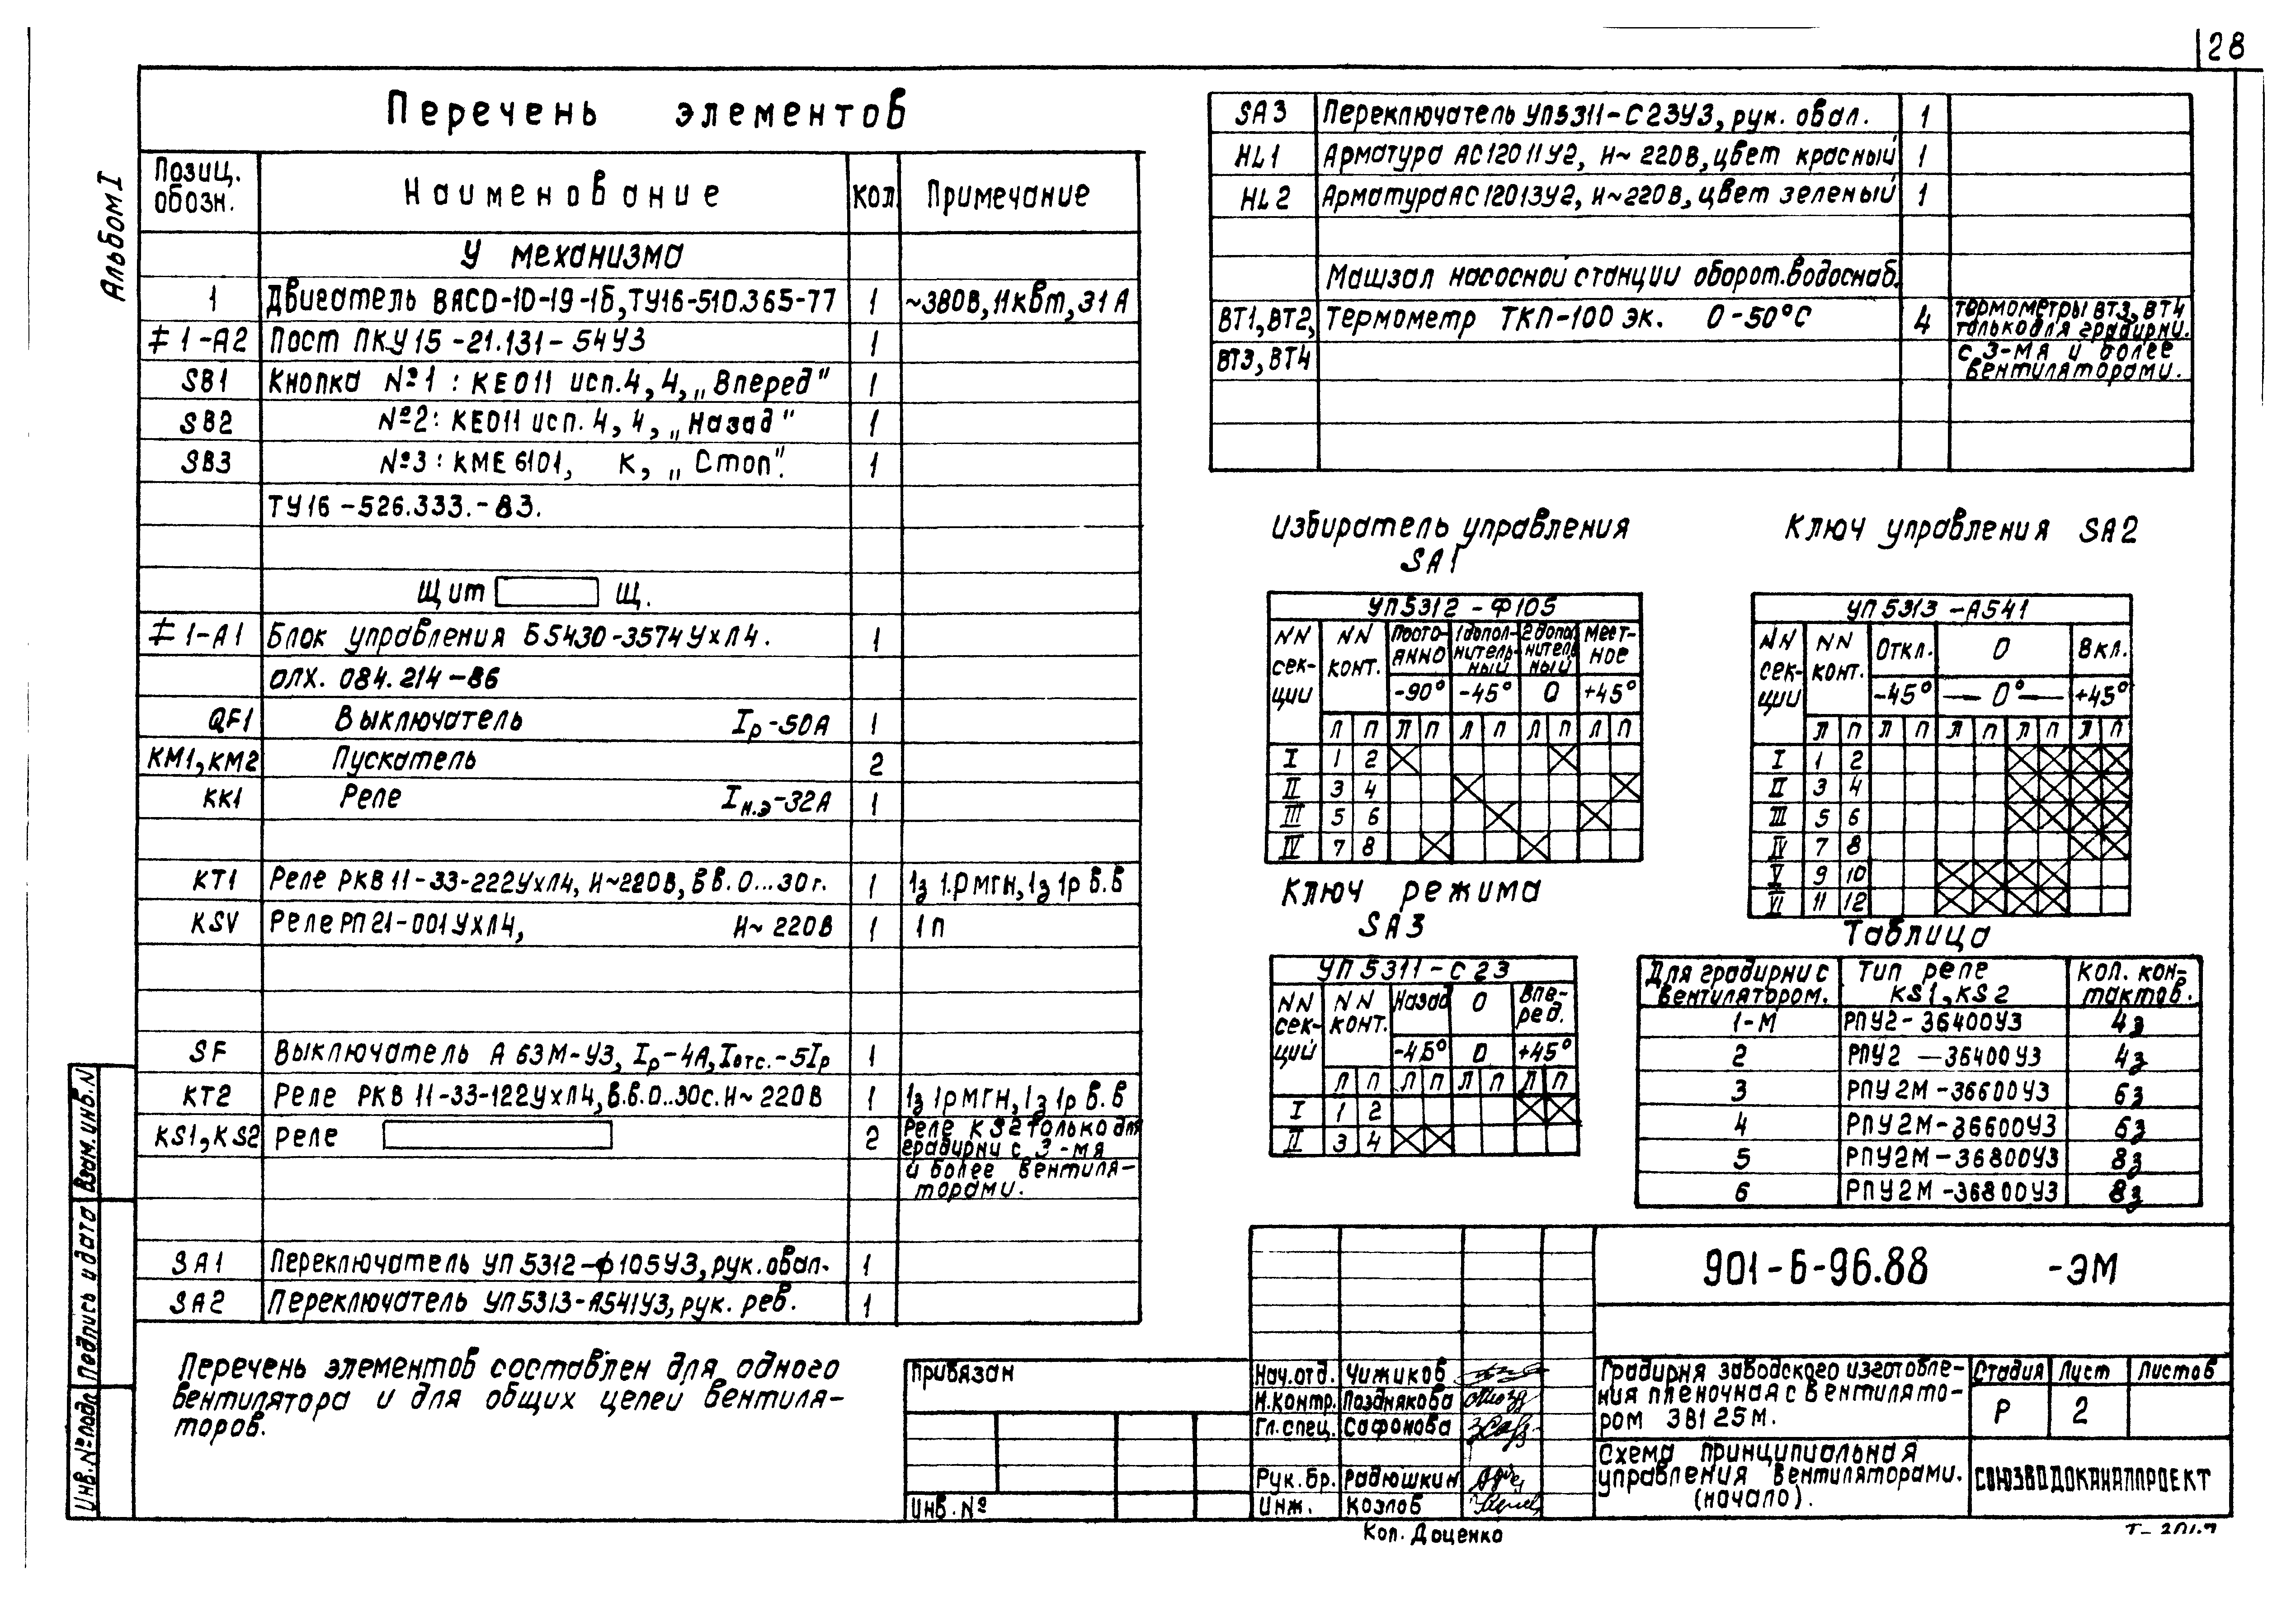 28
Альбом I
Перечень элементов
Позиц. обозн. Наименование Кол. Примечание
У механизма
1 Двигатель ВАСО-10-19-16, ТУ16-510.365-77 1 ~380В, 11кВт, 31А
≠1-А2 Пост ПКУ15-21.131-54У3 1
SB1 Кнопка №1: КЕ011 исп.4, 4, „Вперед" 1
SB2 №2: КЕ011 исп. 4, 4, „Назад" 1
SB3 №3: КМЕ6101, К, „Стоп". 1
ТУ16-526.333.-83.
Щит Щ.
≠1-А1 Блок управления Б5430-3574УхЛ4. 1
ОЛХ. 084.214-86
QF1 Выключатель Iр-50А 1
КМ1, КМ2 Пускатель 2
КК1 Реле Iн.э-32А 1
КТ1 Реле РКВ11-33-222УхЛ4, Н~220В, вв. 0...30г. 1 1з 1рмгн, 1з 1р в.в
KSV Реле РП21-001УХЛ4, Н~220В 1 1п
SF Выключатель А63М-У3, Iр-4А, Iотс.-5Iр 1
КТ2 Реле РКВ 11-33-122УхЛ4, в.в. 0..30с. Н~220В 1 1з 1рмгн, 1з 1р в.в
KS1, KS2 Реле 2 Реле KS2 только для
градирни с 3-мя
и более вентиля-
торами.
SA1 Переключатель УП5312-Ф105У3, рук. овал. 1
SA2 Переключатель УП5313-А541У3, рук. рев. 1
Перечень элементов составлен для одного
вентилятора и для общих цепей вентиля-
торов.
SA3 Переключатель УП5311-С23У3, рук. овал. 1
HL1 Арматура АС12011У2, Н~220В, цвет красный 1
HL2 Арматура АС12013У2, Н~220В, цвет зеленый 1
Машзал насосной станции оборот. водоснаб.
ВТ1, ВТ2, Термометр ТКП-100 эк. 0-50°С 4 термометры ВТ3, ВТ4
только для градирни.
ВТ3, ВТ4 с 3-мя и более
вентиляторами.
Избиратель управления
SA1
УП5312-Ф105
NN секции NN конт. Посто-янно 1 допол-нитель-ный 2 допол-нитель-ный Мест-ное
-90° -45° 0 +45°
Л П Л П Л П Л П Л П
I 1 2
II 3 4
III 5 6
IV 7 8
Ключ управления SA2
УП5313-А541
NN сек-ции NN конт. Откл. 0 Вкл.
-45° — 0° — +45°
Л П Л П Л П Л П Л П
I 1 2
II 3 4
III 5 6
IV 7 8
V 9 10
VI 11 12
Ключ режима
SA3
УП5311-С23
NN сек-ций NN конт. Назад 0 Впе-ред.
-45° 0 +45°
Л П Л П Л П Л П
I 1 2
II 3 4
Таблица
Для градирни с вентилятором. Тип реле KS1, KS2 Кол. кон-тактов.
1-М РПУ2-36400У3 4з
2 РПУ2-36400У3 4з
3 РПУ2М-36600У3 6з
4 РПУ2М-36600У3 6з
5 РПУ2М-36800У3 8з
6 РПУ2М-36800У3 8з
901-6-96.88 -ЭМ
Привязан
Инв. №
Нач.отд. Чижиков
Н.контр. Позднякова
Гл.спец. Сафонова
Рук.бр. Радюшкин
Инж. Козлов
Градирня заводского изготовле-
ния пленочная с вентилято-
ром 3ВГ25М.
Стадия Лист Листов
Р 2
Схема принципиальная
управления вентиляторами.
(начало).
СОЮЗВОДОКАНАЛПРОЕКТ
Коп. Доценко
Инв.№подл. Подпись и дата Взам.инв.N